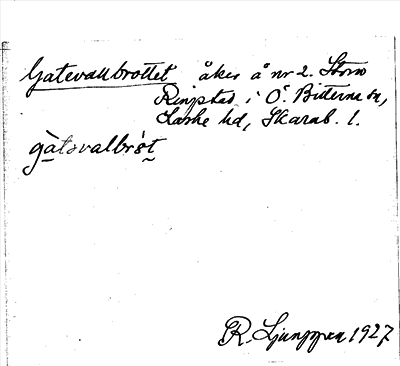 Gatevallbrottet åker å nr 2. Stora
Ringstad i Ö. Bitterna sn,
Laske hd, Skarab. l.
gàtǝvalbrǿt
R. Ljunggren 1927